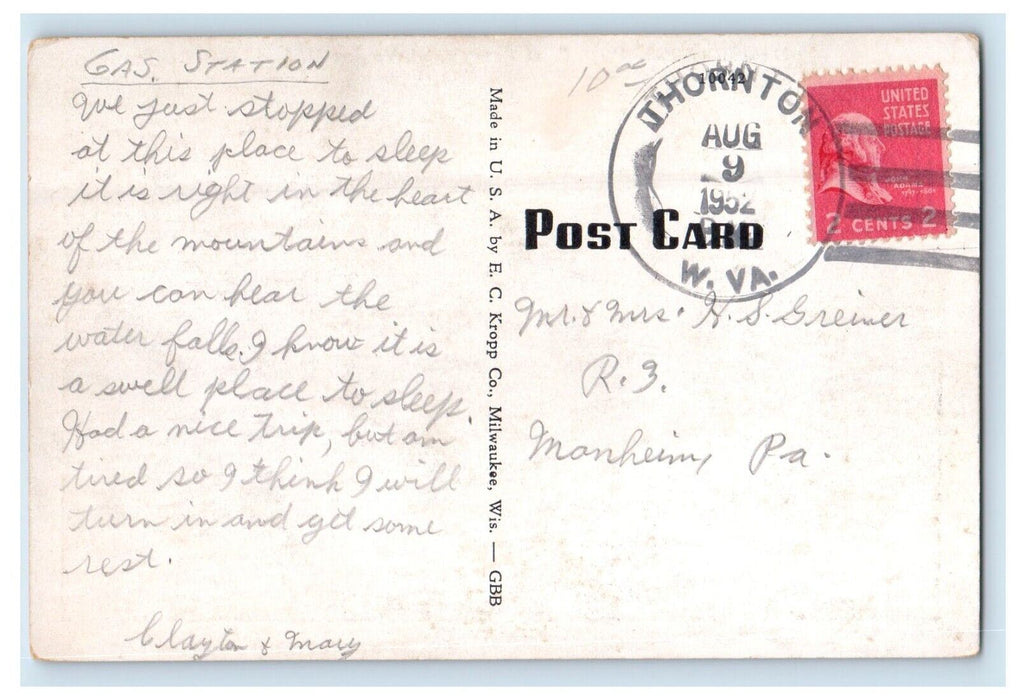 GAS. STATION
We just stopped
at this place to sleep
it is right in the heart
of the mountains and
you can hear the
water falls. I know it is
a swell place to sleep.
Had a nice trip, but am
tired so I think I will
turn in and get some
rest.
Clayton & Mary
Made in U. S. A. by E. C. Kropp Co., Milwaukee, Wis. — GBB
10042
THORNTON
AUG
9
1952
W. VA.
UNITED
STATES
POSTAGE
JOHN
ADAMS
2 CENTS 2
POST CARD
Mr. & Mrs. H. S. Greiner
R. 3.
Manheim, Pa.